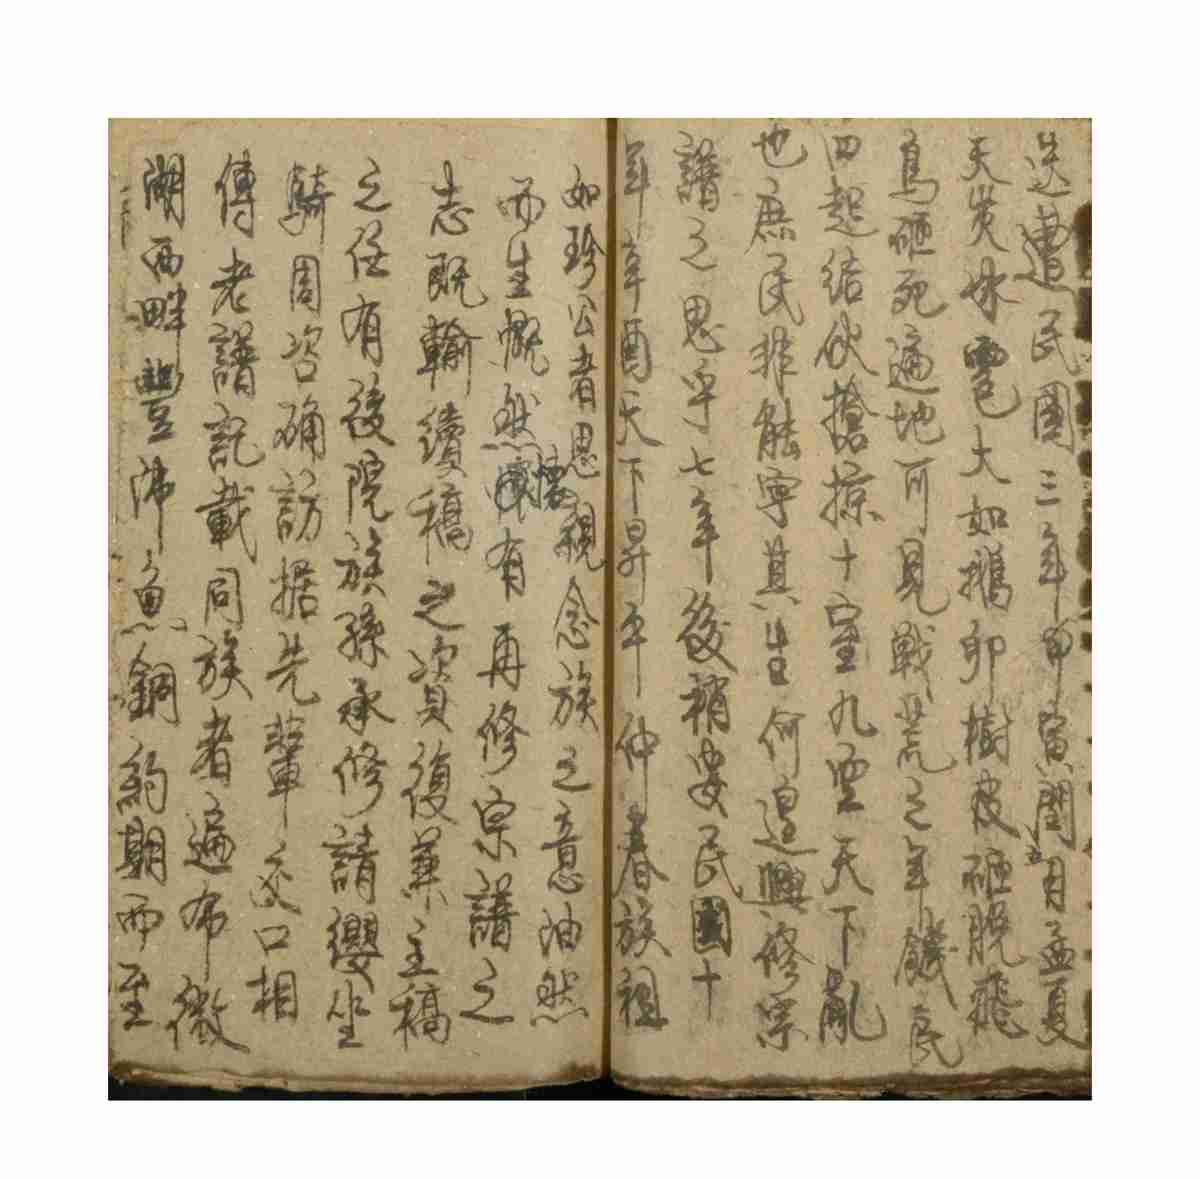 迭遭民國三年甲寅閏五月孟夏
天災冰雹大如鵝卯樹皮砸脫飛
鳥砸死遍地可見戰荒之年饑民
四起結伙搶掠十室九空天下亂
也庶民非能寧其生何遑興修宗
譜之思乎七年後稍安民國十
年辛酉天下昇平仲春族祖
如珍公者思親念族之意油然
而生慨然懷有再修宗譜之
志既輸續稿之資復兼主稿
之任有後院族孫承修請纓坐
騎周咨確訪据先輩交口相
傳老譜記載同族者遍布微
湖西畔豐沛魚銅約期而至